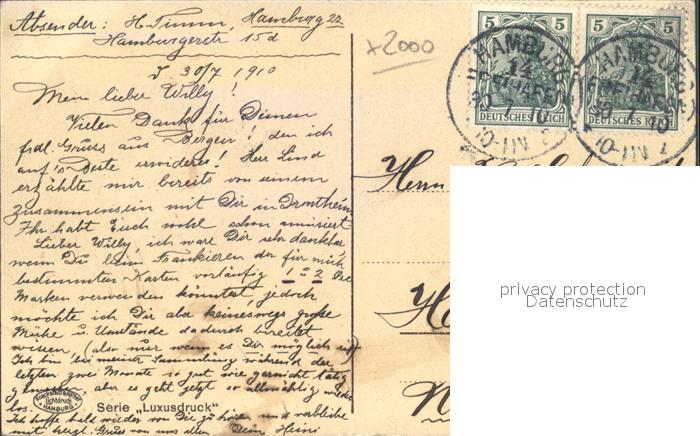 Absender: H. Timm, Hamburg 22
Hamburgerstr 15d
+2000
5 5
DEUTSCHES REICH DEUTSCHES REICH
HAMBURG
14
FREIHAFEN
30 7 10
HAMBURG
14
FREIHAFEN
30 7 10
30/7 1910
Mein lieber Willy!
Vielen Dank für Deinen
frdl. Gruss aus Bergen! den ich
auf's Beste erwidere! Herr Lind
erzählte mir bereits von einem
Zusammensein mit Dir in Drontheim
Ihr habt Euch wohl schon amüsiert
Lieber Willy, ich wäre Dir sehr dankbar,
wenn Du beim Frankieren der für mich
bestimmten Karten vorläufig 1 u 2 Öre
Marken verwenden könntest, jedoch
möchte ich Dir aber keineswegs große
Mühe u. Umstände dadurch bereitet
wissen (also nur wenn es Dir möglich ist)
Ich bin bei meiner Sammlung während der
letzten zwei Monate so gut wie garnicht tätig
gewesen, aber es geht jetzt so allmählig wieder
los.
Ich hoffe bald wieder von Dir zu hören und verbleibe
mit herzl. Gruss von uns allen Dein Heini
HAMBURG
Serie „Luxusdruck"
Herrn
privacy protection
Datenschutz